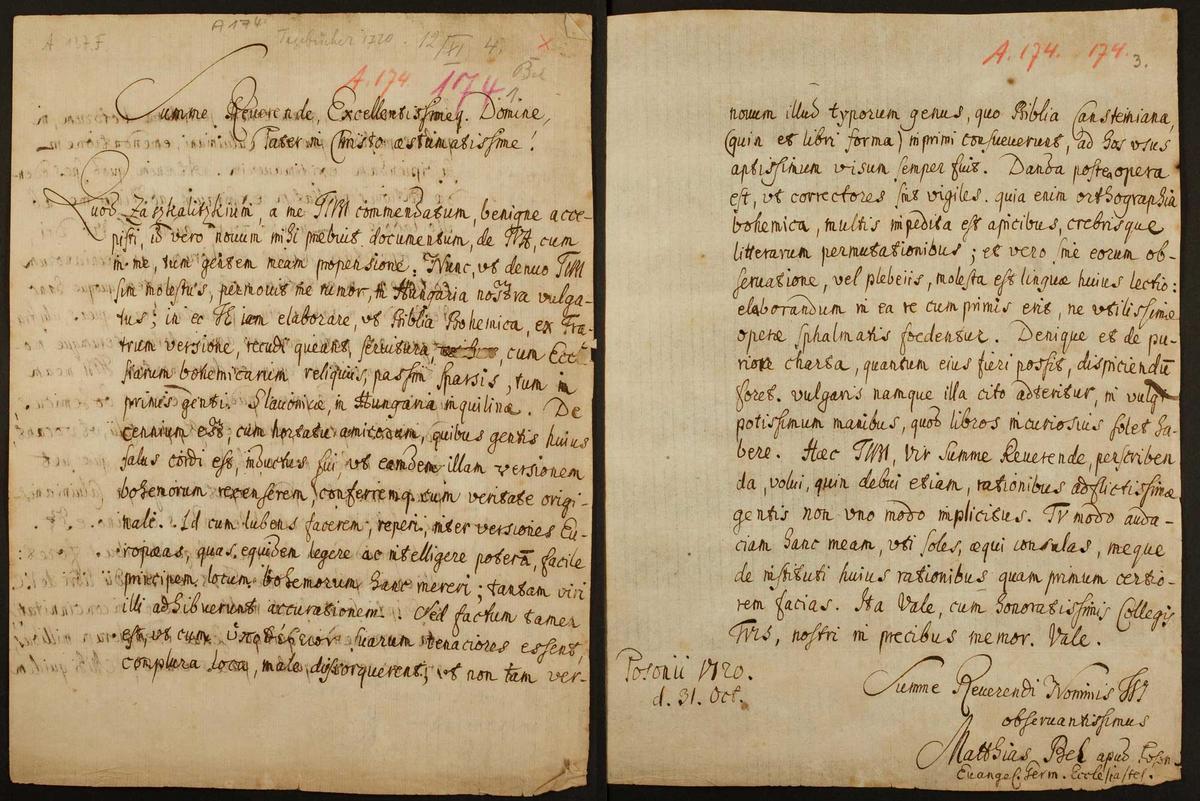 A 174
A 137.F.
Tagebücher 1720. 12/XI 4.
A. 174 1174 Bel
1.
Summe Reuerende, Excellentissimeq. Domine,
Pater in Christo æstumatissime!
Quod Záskalitzkium, a me TIBI commendatum, benigne acce-
pisti, id vero nouum mihi præbuit documentum, de TVA, cum
in me, tum gentem meam propensione. Nunc, vt denuo TIBI
sim molestus, permouit me rumor, in Hungaria nostra vulga-
tus; in eo TE iam elaborare, vt Biblia Bohemica, ex Fra-
trum versione, recudi queant, seruitura, cum Eccl
siarum bohemicarum reliquiis, passim sparsis, tum in
primis genti Slauonicæ, in Hungaria inquilinæ. De
cennium est, cum hortatu amicorum, quibus gentis huius
salus cordi est, inductus fui vt eamdem illam versionem
bohemorum recenserem, conferremq. cum veritate origi-
nali. Id cum lubens facerem, reperi, inter versiones Eu-
ropæas, quas equidem legere ac intelligere poterā, facile
principem locum bohemorum hanc mereri; tantam viri
illi adhibuerunt accurationem. Sed factum tamen
est, vt cum ὑποθέσεων suarum tenaciores essent,
complura loca, male dissorquerent, vt non tam ver-
A. 174. 174. 3.
nouum illud typorum genus, quo Biblia Cansteiniana,
(quin et libri forma) inprimi consueuerunt, ad hos vsus
aptissimum visum semper fuit. Danda postea opera
est, vt correctores sint vigiles. quia enim orthographia
bohemica, multis impedita est apicibus, crebrisque
litterarum permutationibus; et vero sine eorum ob-
seruatione, vel plebeiis, molesta est linguæ huius lectio:
elaborandum in ea re cum primis erit, ne vtilissimæ
operæ sphalmatis foedentur. Denique et de pu-
riore charta, quantum eius fieri possit, dispiciendū
foret. vulgaris namque illa cito adteritur, in vulgi
potissimum manibus, quod libros incuriosius solet ha-
bere. Hæc TIBI, Vir Summe Reuerende, perscriben
da, volui, quin debui etiam, rationibus adflictissimæ
gentis non vno modo implicitus. Tv modo auda-
ciam hanc meam, vti soles, æqui consulas, meque
de instituti huius rationibus quam primum certio-
rem facias. Ita Vale, cum honoratissimis Collegis
TVIS, nostri in precibus memor. Vale.
Posonii 1720.
d. 31. Oct.
Summe Reuerendi Nominis TVI
obseruantissimus
Matthias Bel apud Poson.
Euangel. Germ. Ecclesiastes.